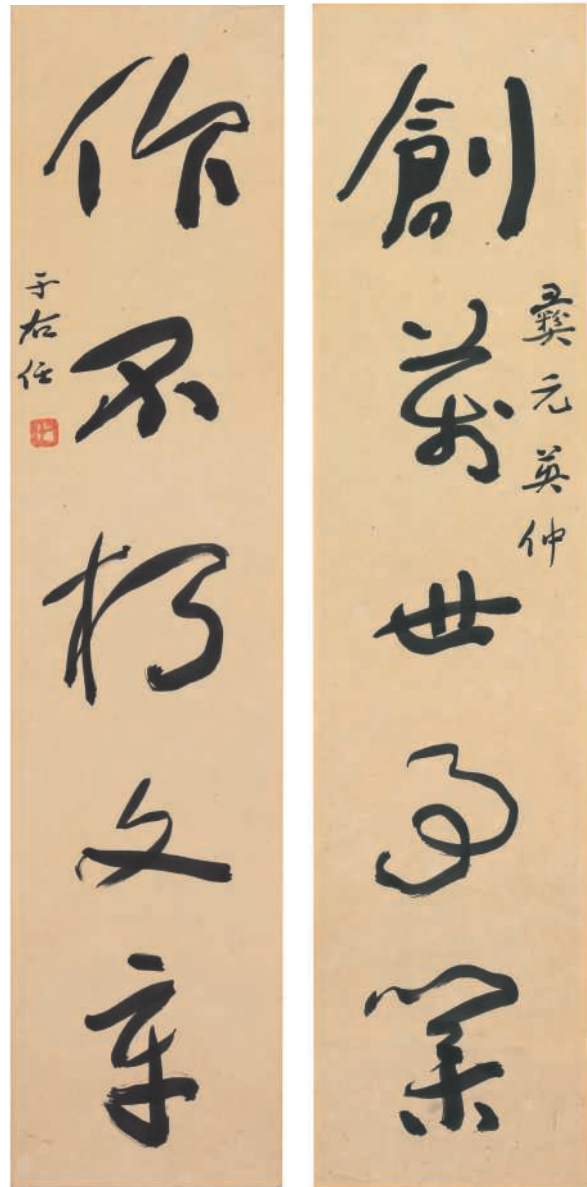 創萬世事業
彝元英仲
作不朽文章
于右任